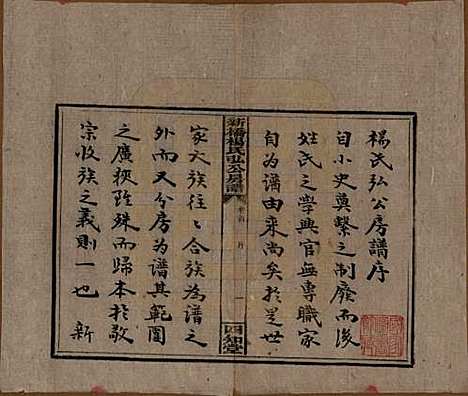 楊氏弘公房譜序
自小史奠繫之制廢而後
姓氏之學興官無專職家
自為譜由來尚矣於是世
新橋楊氏弘公房譜
卷首
序
一
四知堂
家大族往〻合族為譜之
外而又分房為譜其範圍
之廣狹雖殊而歸本於敬
宗收族之義則一也新